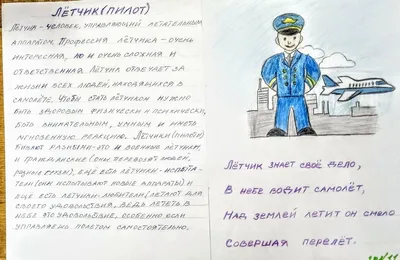 ЛЁТЧИК(ПИЛОТ)
ЛЁТЧИК - ЧЕЛОВЕК, УПРАВЛЯЮЩИЙ ЛЕТАТЕЛЬНЫМ
АППАРАТОМ. ПРОФЕССИЯ ЛЁТЧИКА - ОЧЕНЬ
ИНТЕРЕСНАЯ, НО И ОЧЕНЬ СЛОЖНАЯ И
ОТВЕТСТВЕННАЯ. ЛЁТЧИК ОТВЕЧАЕТ ЗА
ЖИЗНИ ВСЕХ ЛЮДЕЙ, НАХОДЯЩИХСЯ В
САМОЛЁТЕ. ЧТОБЫ СТАТЬ ЛЁТЧИКОМ НУЖНО
БЫТЬ ЗДОРОВЫМ ФИЗИЧЕСКИ И ПСИХИЧЕСКИ,
БЫТЬ ВНИМАТЕЛЬНЫМ, УМНЫМ И ИМЕТЬ
МГНОВЕННУЮ РЕАКЦИЮ. ЛЁТЧИКИ (ПИЛОТЫ)
БЫВАЮТ РАЗНЫМИ - ЭТО И ВОЕННЫЕ ЛЁТЧИКИ,
И ГРАЖДАНСКИЕ (ОНИ ПЕРЕВОЗЯТ ЛЮДЕЙ,
ГРУЗЫ), ЕЩЁ ЕСТЬ ЛЁТЧИКИ - ИСПЫТА-
ТЕЛИ (ОНИ ИСПЫТЫВАЮТ НОВЫЕ АППАРАТЫ) И
ЕЩЁ ЕСТЬ ЛЁТЧИКИ-ЛЮБИТЕЛИ (ЛЕТАЮТ ДЛЯ
СВОЕГО УДОВОЛЬСТВИЯ, ВЕДЬ ЛЕТЕТЬ В
НЕБЕ ЭТО УДОВОЛЬСТВИЕ, ОСОБЕННО ЕСЛИ
УПРАВЛЯЕШЬ ПОЛЁТОМ САМОСТОЯТЕЛЬНО.
ЛЁТЧИК ЗНАЕТ СВОЁ ДЕЛО,
В НЕБЕ ВОДИТ САМОЛЁТ,
НАД ЗЕМЛЕЙ ЛЕТИТ ОН СМЕЛО
СОВЕРШАЯ ПЕРЕЛЁТ.